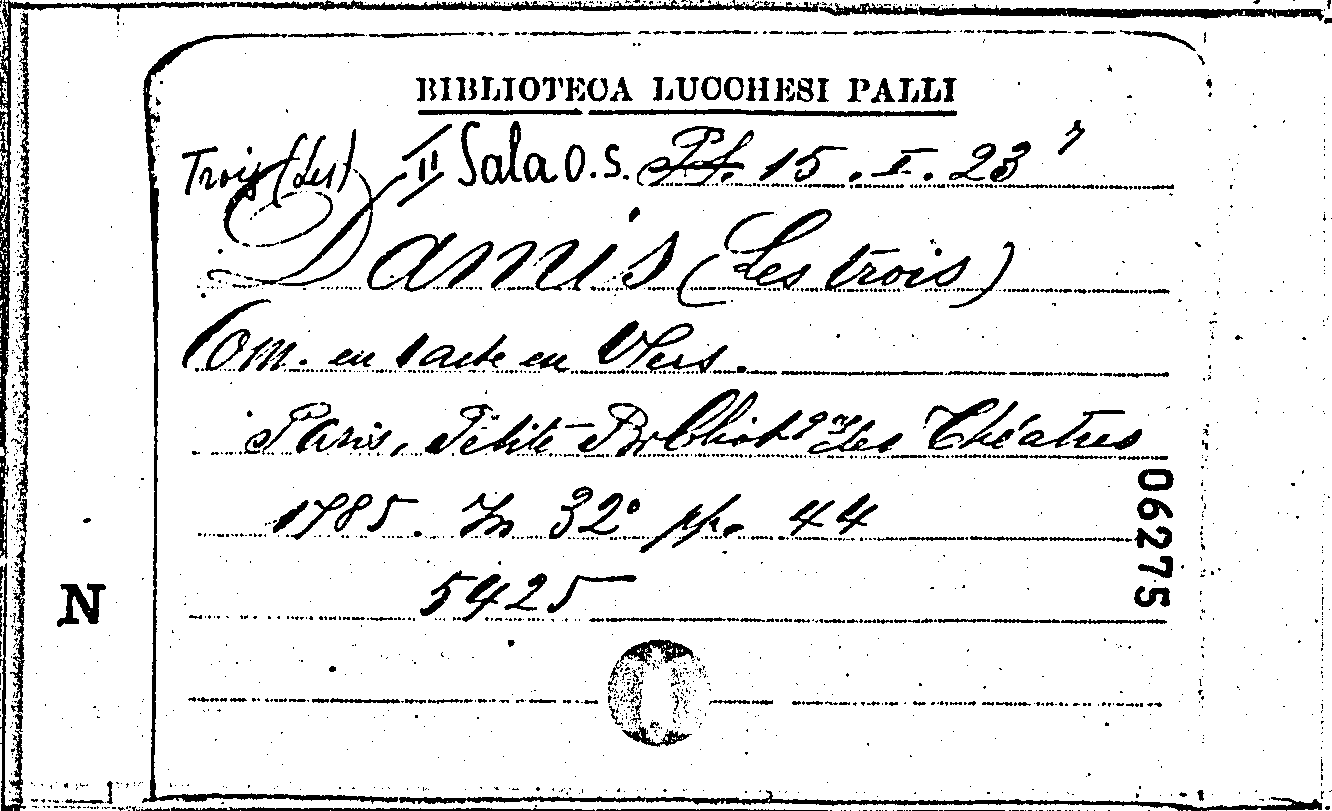 BIBLIOTECA LUCCHESI PALLI
Trois (Les) II Sala O.S. Pf. 15. I. 23 7
Damis (Les trois)
Com. en 1 acte en Vers.
Paris, Petite Bibliot que des Théatres
1785. In 32° pp. 44
5425
06275
N